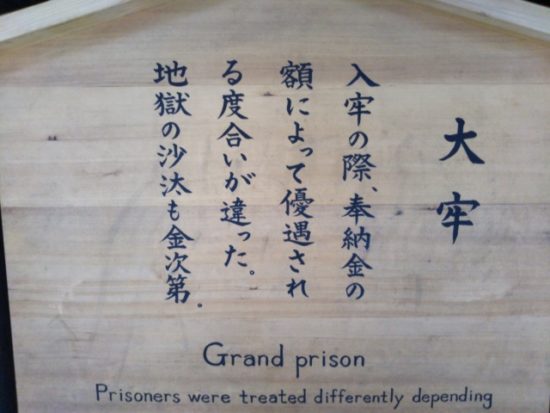 大牢
入牢の際、奉納金の
額によって優遇され
る度合いが違った。
地獄の沙汰も金次第。
Grand prison
Prisoners were treated differently depending